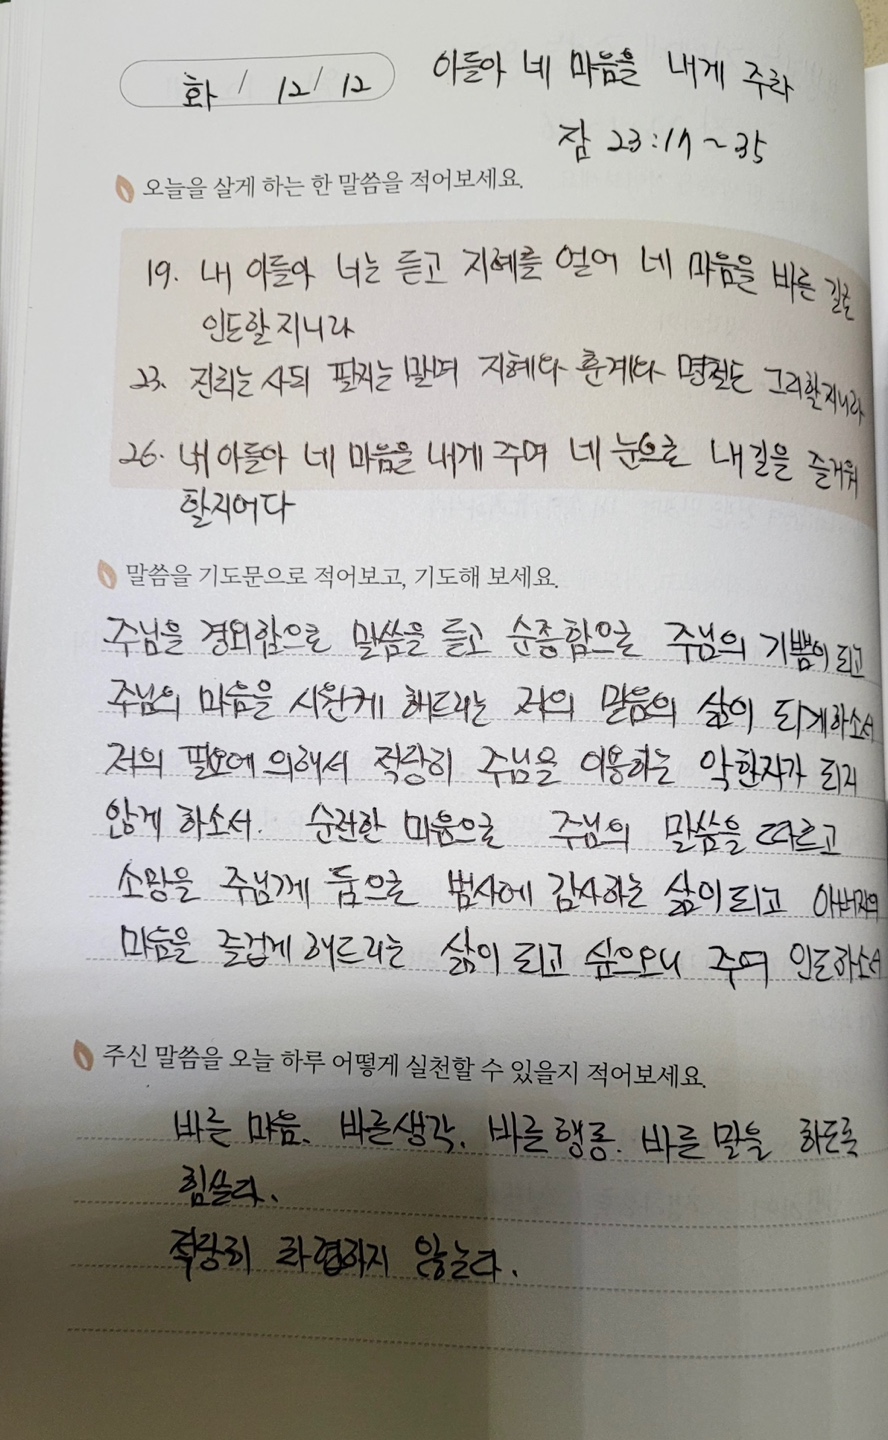 화 / 12 / 12
아들아 네 마음을 내게 주라
잠 23:17~35
오늘을 살게 하는 한 말씀을 적어보세요.
19. 내 아들아 너는 듣고 지혜를 얻어 네 마음을 바른 길로
인도할지니라
23. 진리는 사되 팔지는 말며 지혜와 훈계와 명철도 그리할지니라
26. 내 아들아 네 마음을 내게 주며 네 눈으로 내 길을 즐거워
할지어다
말씀을 기도문으로 적어보고, 기도해 보세요.
주님을 경외함으로 말씀을 듣고 순종함으로 주님의 기쁨이 되고
주님의 마음을 시원케 해드리는 저의 믿음의 삶이 되게하소서
저의 필요에 의해서 적당히 주님을 이용하는 악한자가 되지
않게 하소서. 순전한 마음으로 주님의 말씀을 따르고
소망을 주님께 둠으로 범사에 감사하는 삶이 되고 아버지의
마음을 즐겁게 해드리는 삶이 되고 싶으오니 주여 인도하소서
주신 말씀을 오늘 하루 어떻게 실천할 수 있을지 적어보세요.
바른 마음. 바른생각. 바른행동. 바른 말을 하도록
힘쓴다.
적당히 타협하지 않는다.